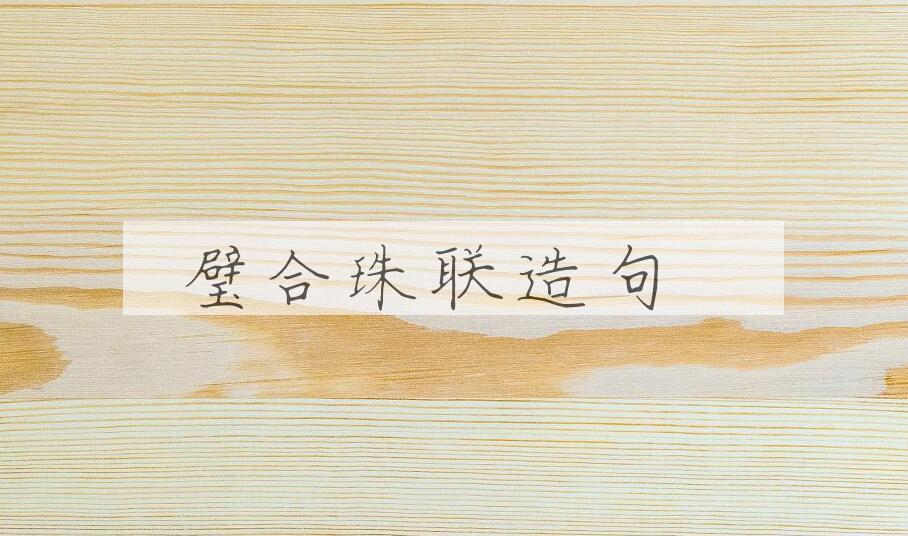 璧合珠联造句